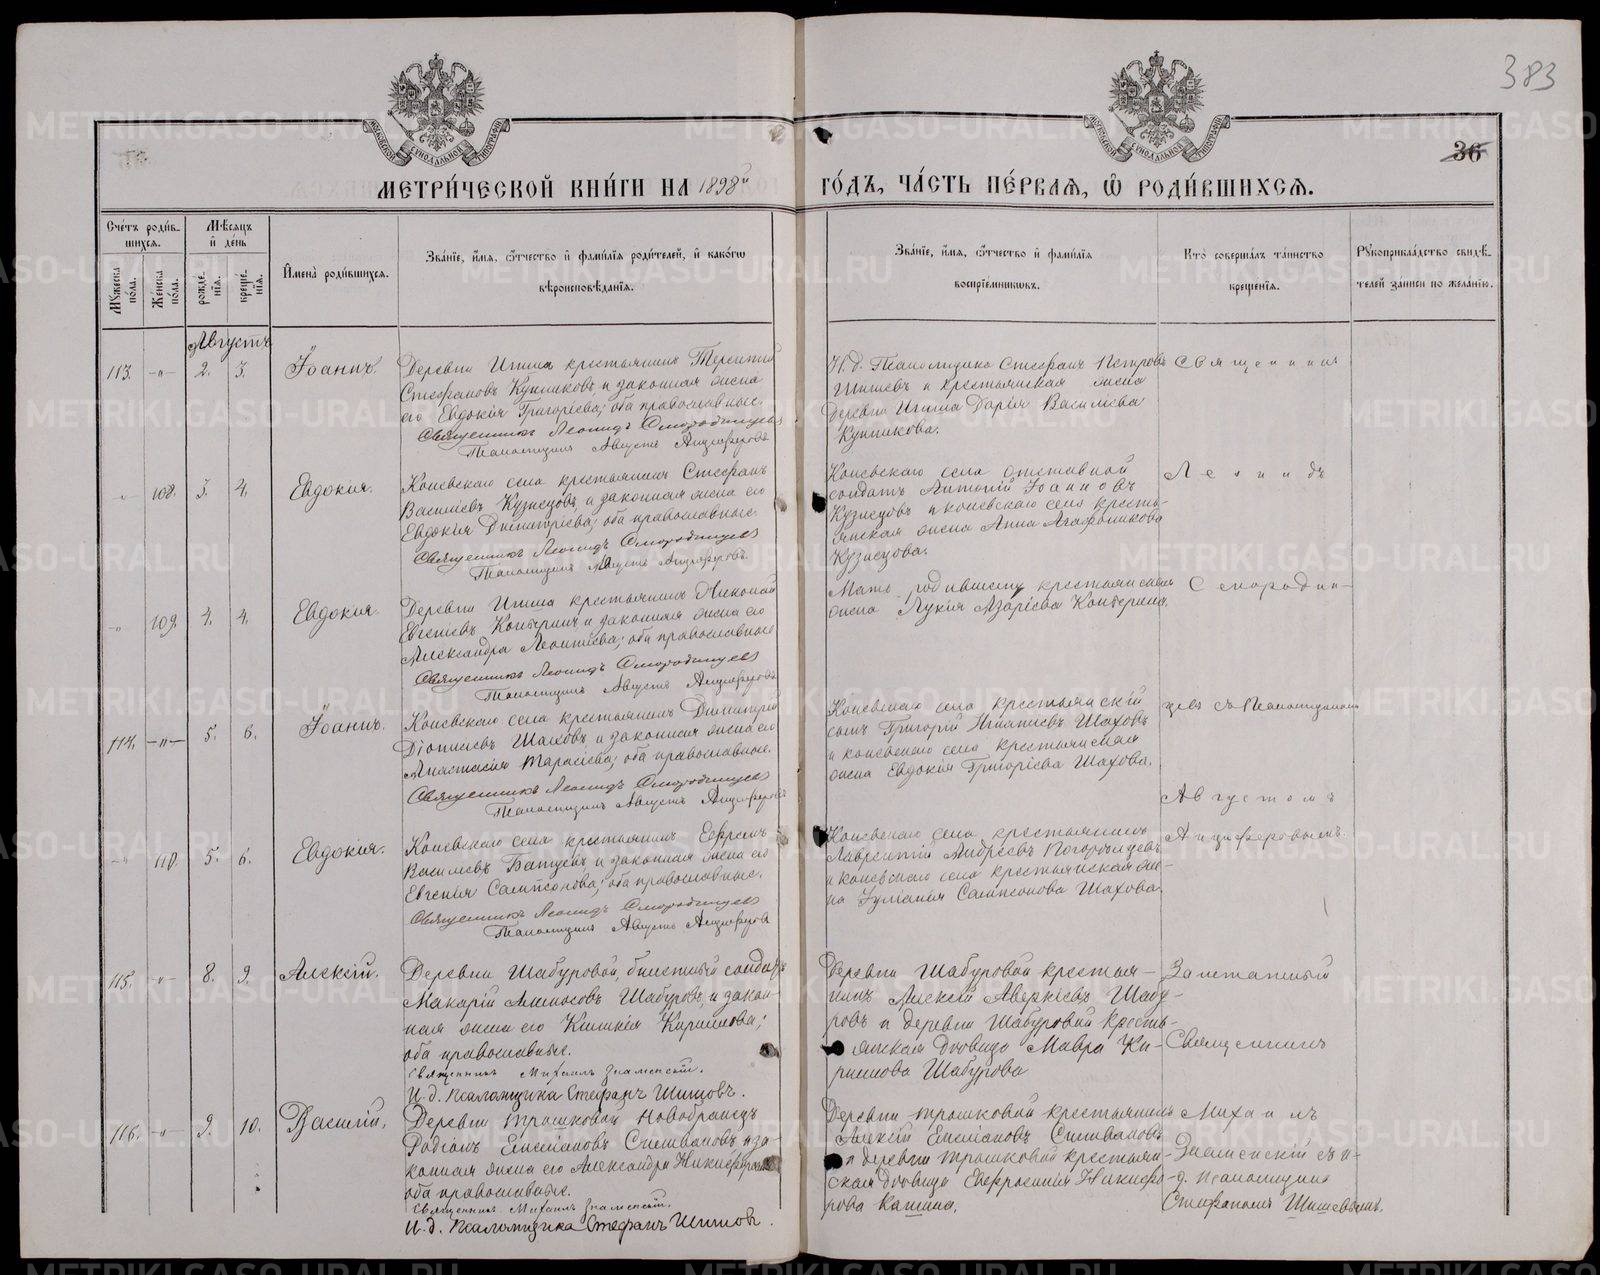 383
36
МЕТРИ́ЧЕСКОЙ КНИ́ГИ НА 1898й ГО́ДЪ, ЧА́СТЬ ПЕ́РВАѦ, Ѡ҆ РОДИ́ВШИХСѦ.
Сче́тъ роди́в-
шихсѧ.
Мѣ́сѧцъ
и҆ де́нь
Мꙋ́жеска по́ла.
Же́нска по́ла.
рожде́-
нїѧ.
креще́-
нїѧ.
И҆мена̀ роди́вшихсѧ.
Зва́нїе, и҆́мѧ, ѻ҆́тчество и҆ фами́лїѧ роди́телей, и҆ како́гѡ
вѣроисповѣ́данїѧ.
Зва́нїе, и҆́мѧ, ѻ҆́тчество и҆ фами́лїѧ
воспрїе́мникѡвъ.
Кто̀ соверша́лъ та́инство
креще́нїѧ.
Рꙋкоприкла́дство свидѣ́-
телей за́писи по жела́нїю.
Августъ
113. -"- 2. 3. Іоаннъ.
Деревни Ипина крестьянинъ Терентій
Стефановъ Кунниковъ и законная жена
его Евдокія Григоріева; оба православные.
Священникъ Леонидъ Смородинцевъ
Псаломщикъ Августъ Анциферовъ
И. д. Псаломщика Стефанъ Петровъ
Шишевъ и крестьянская жена
деревни Ипина Дарія Василіева
Кунникова.
Священникъ
-"- 108. 3. 4. Евдокія.
Коневскаго села крестьянинъ Стефанъ
Василіевъ Кузнецовъ и законная жена его
Евдокія Димитріева; оба православные.
Священникъ Леонидъ Смородинцевъ
Псаломщикъ Августъ Анциферовъ.
Коневскаго села отставной
солдатъ Антоній Іоанновъ
Кузнецовъ и коневскаго села кресть-
янская жена Анна Агафоникова
Кузнецова.
Леонидъ
-"- 109. 4. 4. Евдокія.
Деревни Ипина крестьянинъ Николай
Евгеніевъ и законная жена его
Александра Леонтіева; оба православные
Священникъ Леонидъ Смородинцевъ
Псаломщикъ Августъ Анциферовъ
Мать родившему крестьянская
жена Лукія Азаріева
Смородин-
114. -"- 5. 6. Іоаннъ.
Коневскаго села крестьянинъ Димитрій
Діонисіевъ Шаховъ и законная жена его
Анастасія Тарасіева; оба православные.
Священникъ Леонидъ Смородинцевъ
Псаломщикъ Августъ Анциферовъ
Коневскаго села крестьянскій
сынъ Григорій Игнатіевъ Шаховъ
и коневскаго села крестьянская
жена Евдокія Григоріева Шахова.
цевъ съ Псаломщикомъ
Августомъ
-"- 110. 5. 6. Евдокія.
Коневскаго села крестьянинъ Ефремъ
Василіевъ Батуевъ и законная жена его
Евгенія Сампсонова; оба православные.
Священникъ Леонидъ Смородинцевъ
Псаломщикъ Августъ Анциферовъ
Коневскаго села крестьянинъ
Лаврентій Андреевъ Погорѣльцевъ
и коневскаго села крестьянская же-
на Іуліанія Сампсонова Шахова.
Анциферовымъ.
115. -"- 8. 9. Алексій.
Деревни Шабуровой, билетный солдатъ
Макарій Шабуровъ и закон-
ная жена его Киликія Кириллова;
оба православные.
Священникъ Михаилъ Знаменскій.
И. д. Псаломщика Стефанъ Шишовъ.
Деревни Шабуровой крестья-
нинъ Алексій Аверкіевъ Шабу-
ровъ и деревни Шабуровой кресть-
янская дѣвица Мавра Ки-
риллова Шабурова
Заштатный
Священникъ
116. -"- 9. 10. Василій.
Деревни Трошковой новобранецъ
Родіонъ Емеліановъ Селивановъ и за-
конная жена его Александра Никифорова
оба православные.
Священникъ Михаилъ Знаменскій.
И. д. Псаломщика Стефанъ Шишов.
Деревни Трошковой крестьянинъ
Алексій Емеліановъ Селивановъ
и деревни Трошковой крестьян-
ская дѣвица Евфросинія Никифо-
рова Капина.
Михаилъ
Знаменскій съ и.
д. псаломщика
Стефаномъ Шишевымъ.